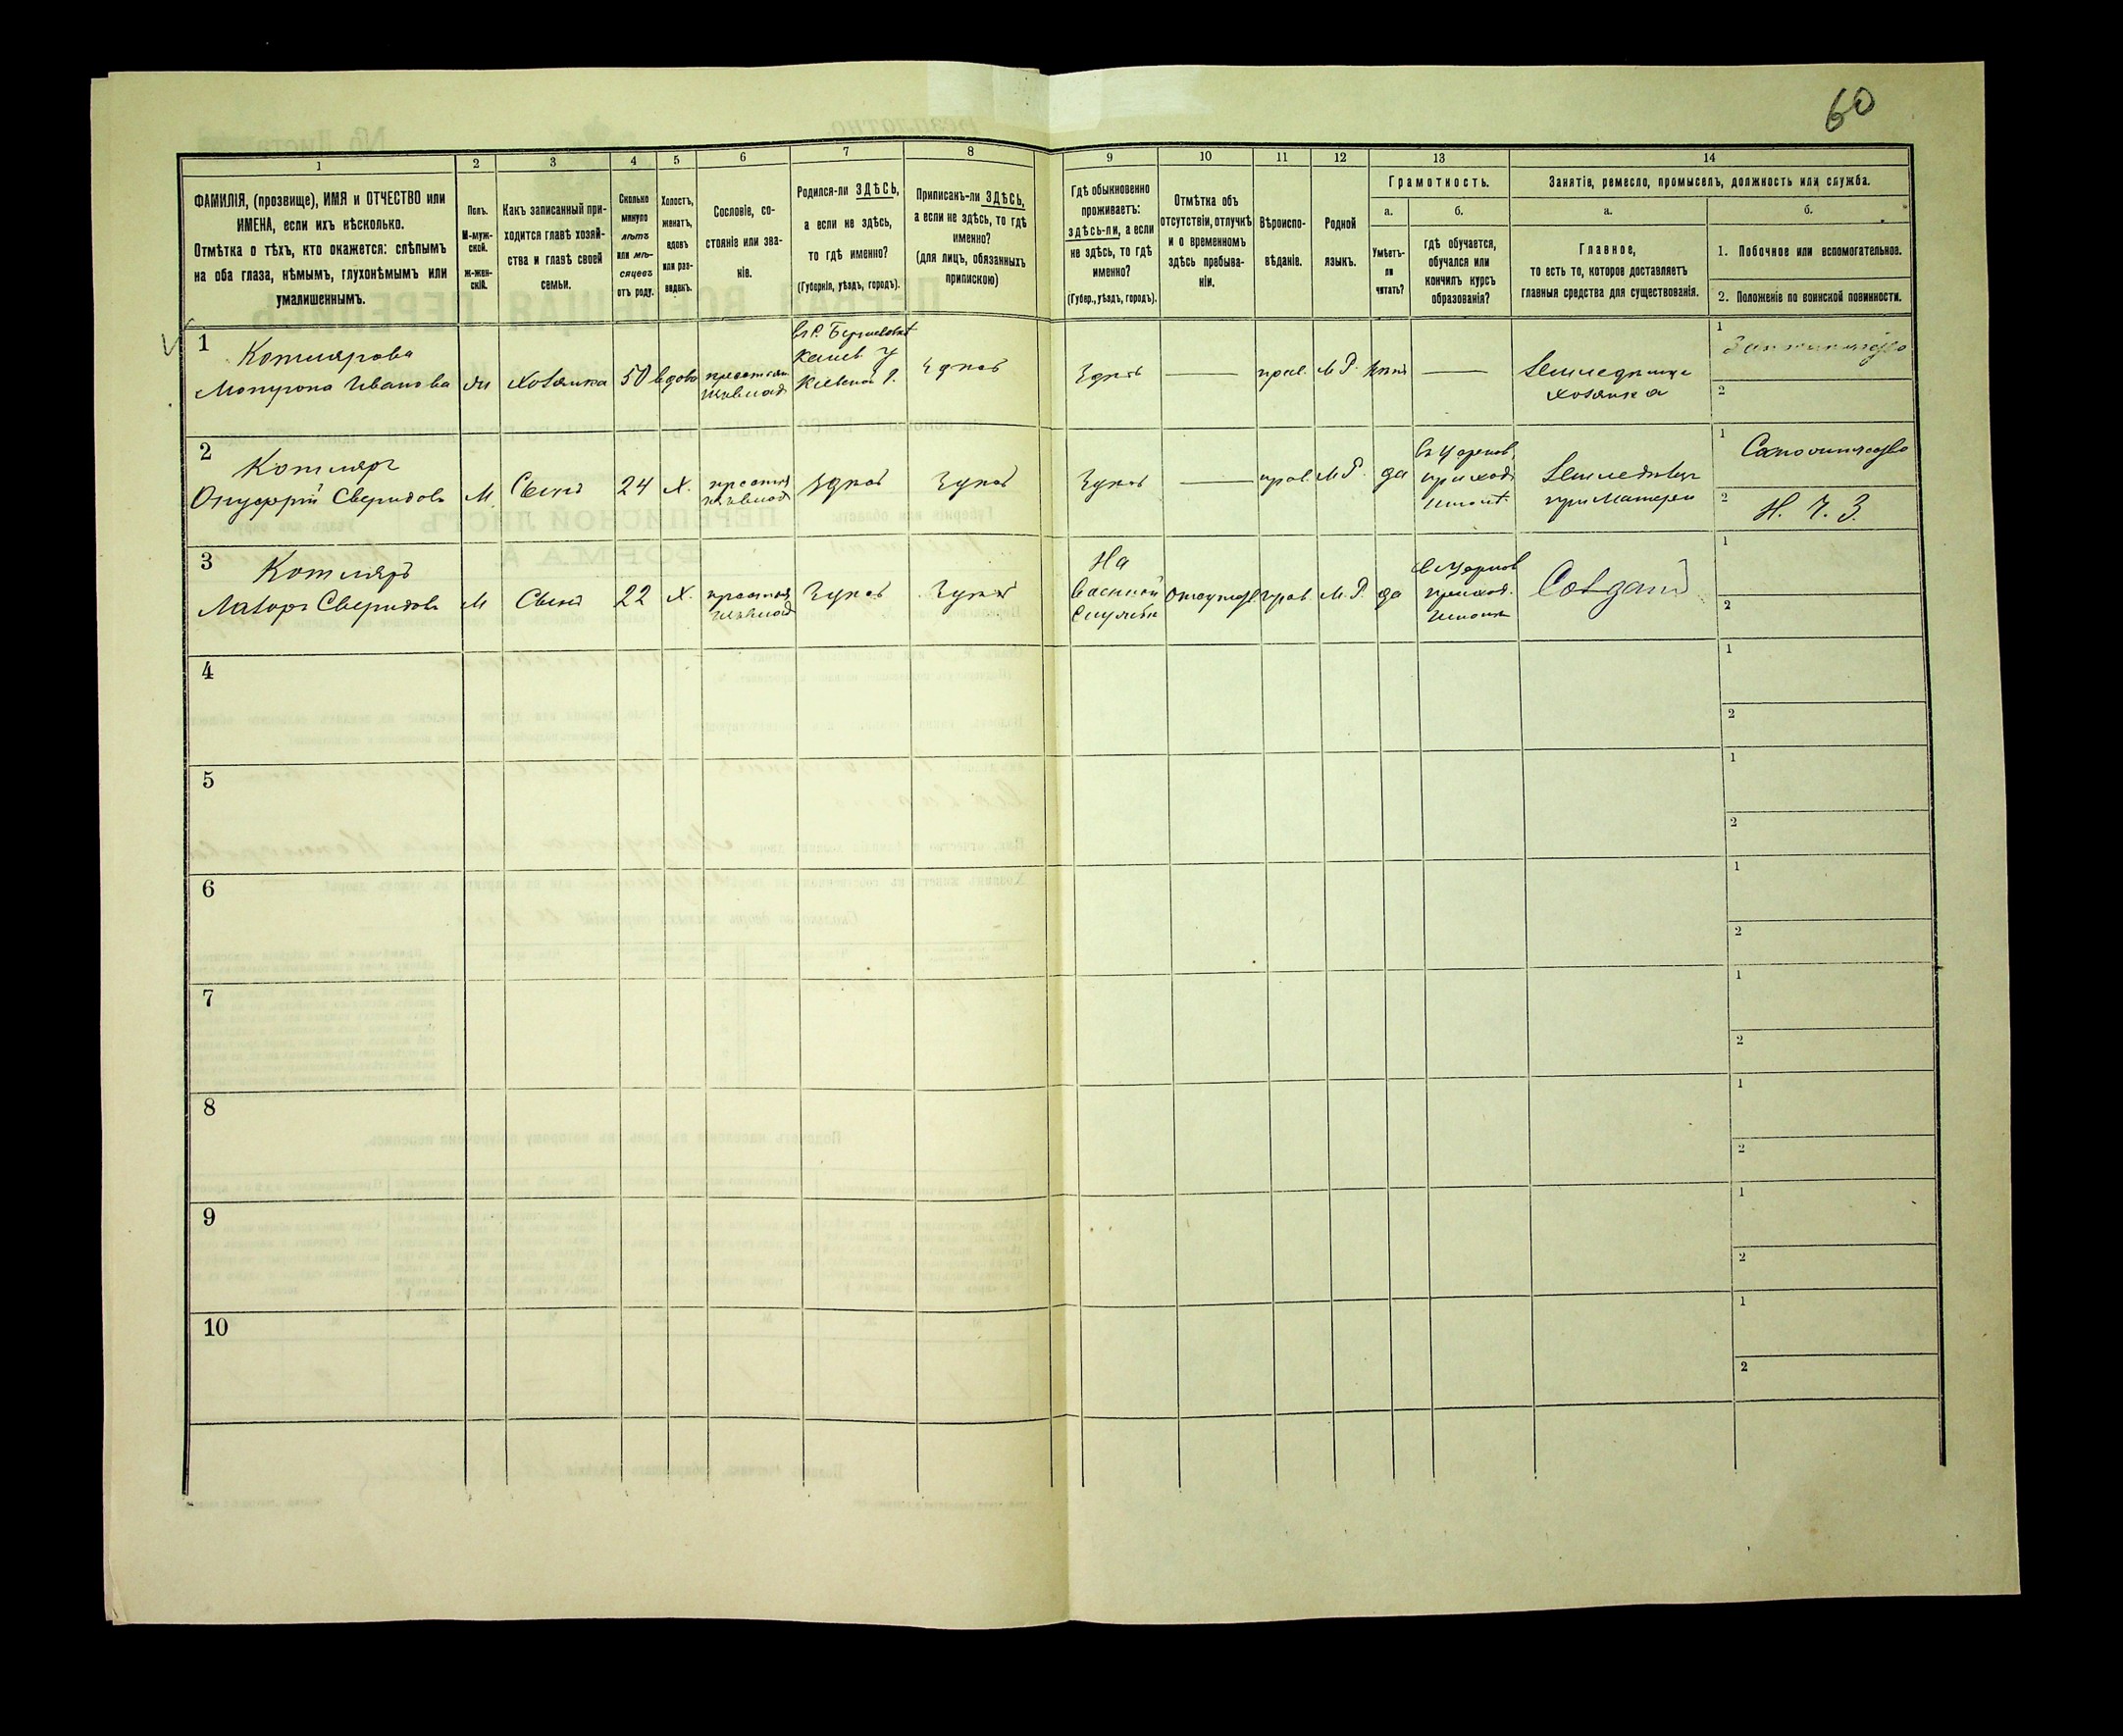 60
1
2
3
4
5
6
7
8
9
10
11
12
13
14
ФАМИЛІЯ, (прозвище), ИМЯ и ОТЧЕСТВО или
ИМЕНА, если ихъ нѣсколько.
Отмѣтка о тѣхъ, кто окажется: слѣпымъ
на оба глаза, нѣмымъ, глухонѣмымъ или
умалишеннымъ.
Полъ.
М-муж-
ской.
Ж-жен-
скій.
Какъ записанный при-
ходится главѣ хозяй-
ства и главѣ своей
семьи.
Сколько
минуло
лѣтъ
или мѣ-
сяцевъ
отъ роду.
Холостъ,
женатъ,
вдовъ
или раз-
веденъ.
Сословіе, со-
стояніе или зва-
ніе.
Родился-ли ЗДѢСЬ,
а если не здѣсь,
то гдѣ именно?
(Губернія, уѣздъ, городъ).
Приписанъ-ли ЗДѢСЬ,
а если не здѣсь, то гдѣ
именно?
(для лицъ, обязанныхъ
припискою)
Гдѣ обыкновенно
проживаетъ:
здѣсь-ли, а если
не здѣсь, то гдѣ
именно?
(Губер., уѣздъ, городъ).
Отмѣтка объ
отсутствіи, отлучкѣ
и о временномъ
здѣсь пребыва-
ніи.
Вѣроиспо-
вѣданіе.
Родной
языкъ.
Грамотность.
а.
Умѣетъ-
ли
читать?
б.
гдѣ обучается,
обучался или
кончилъ курсъ
образованія?
Занятіе, ремесло, промыселъ, должность или служба.
а.
Главное,
то есть то, которое доставляетъ
главныя средства для существованія.
б.
1. Побочное или вспомогательное.
2. Положеніе по воинской повинности.
1
Котлярова
Мотрона Иванова
Хозяйка
50
вдова
Каневъ У
Кіевской Г.
Здѣсь
Здѣсь
прав.
М Р.
нѣтъ
Хозяйка
1
2
2
Котляръ
Онуфрій Свиридовъ
М
Сынъ
24
Х.
Здѣсь
Здѣсь
Здѣсь
прав.
М Р.
да
въ Церков.
приход.
школѣ
Земледѣлецъ
при Матери
1
2
Н. Ч. З.
3
Котляръ
Лазарь Свиридовъ
М
Сынъ
22
Х.
Здѣсь
Здѣсь
На
Военной
Службѣ
прав.
М. Р.
да
въ Церков
приход.
школѣ
Солдатъ
1
2
4
1
2
5
1
2
6
1
2
7
1
2
8
1
2
9
1
2
10
1
2